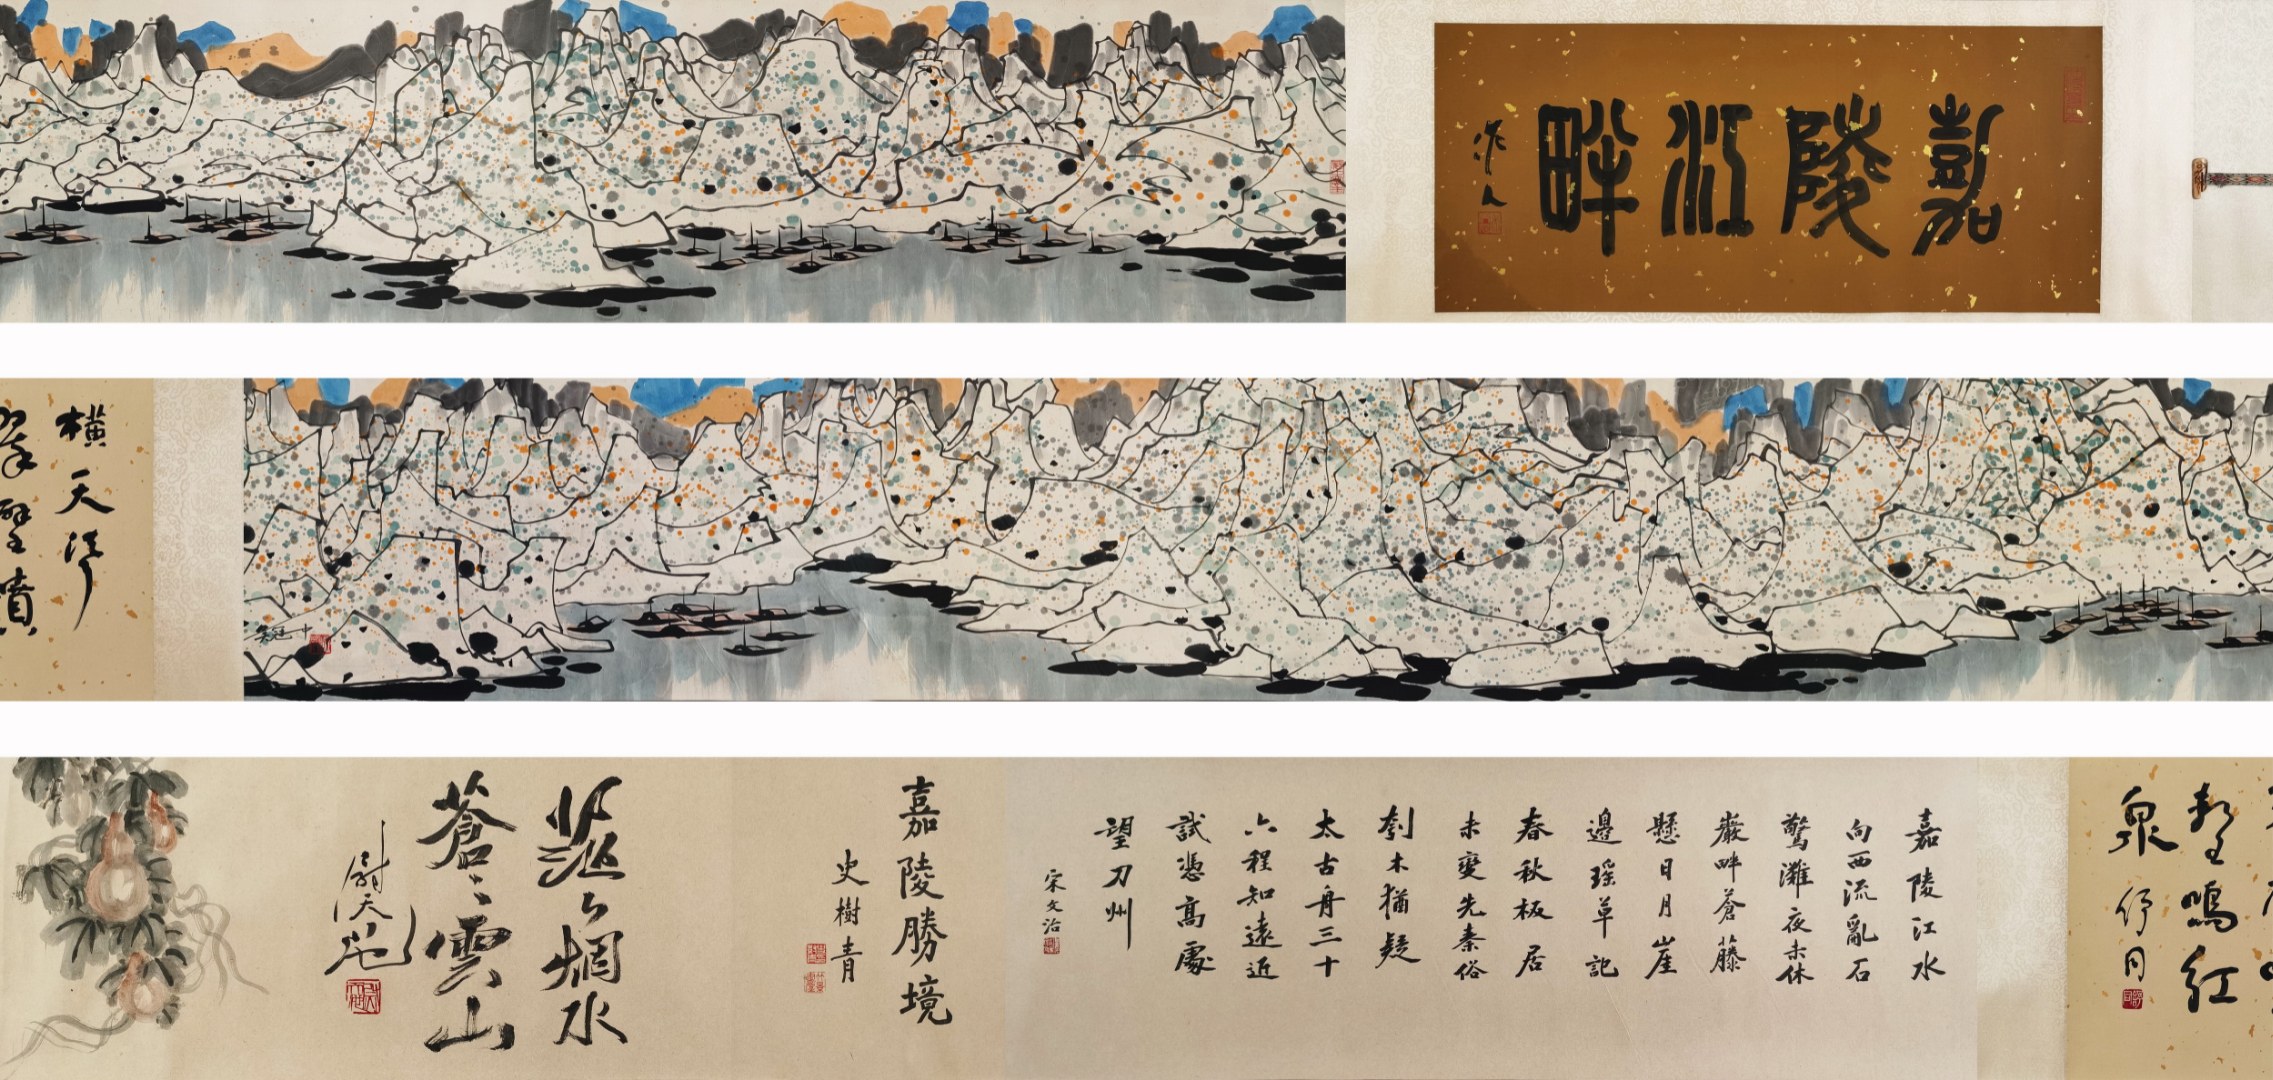 嘉陵江畔
作人
吴冠中
橫天
翠壁噴
鳴紅
泉
舒同
嘉陵江水
向西流亂石
驚灘夜未休
巖畔蒼藤
懸日月崖
邊瑤草記
春秋板居
未變先秦俗
刳木猶疑
太古舟三十
六程知遠近
試憑高處
望刀州
宋文治
嘉陵勝境
史樹青
茫〻烟水
蒼〻雲山
尉天池